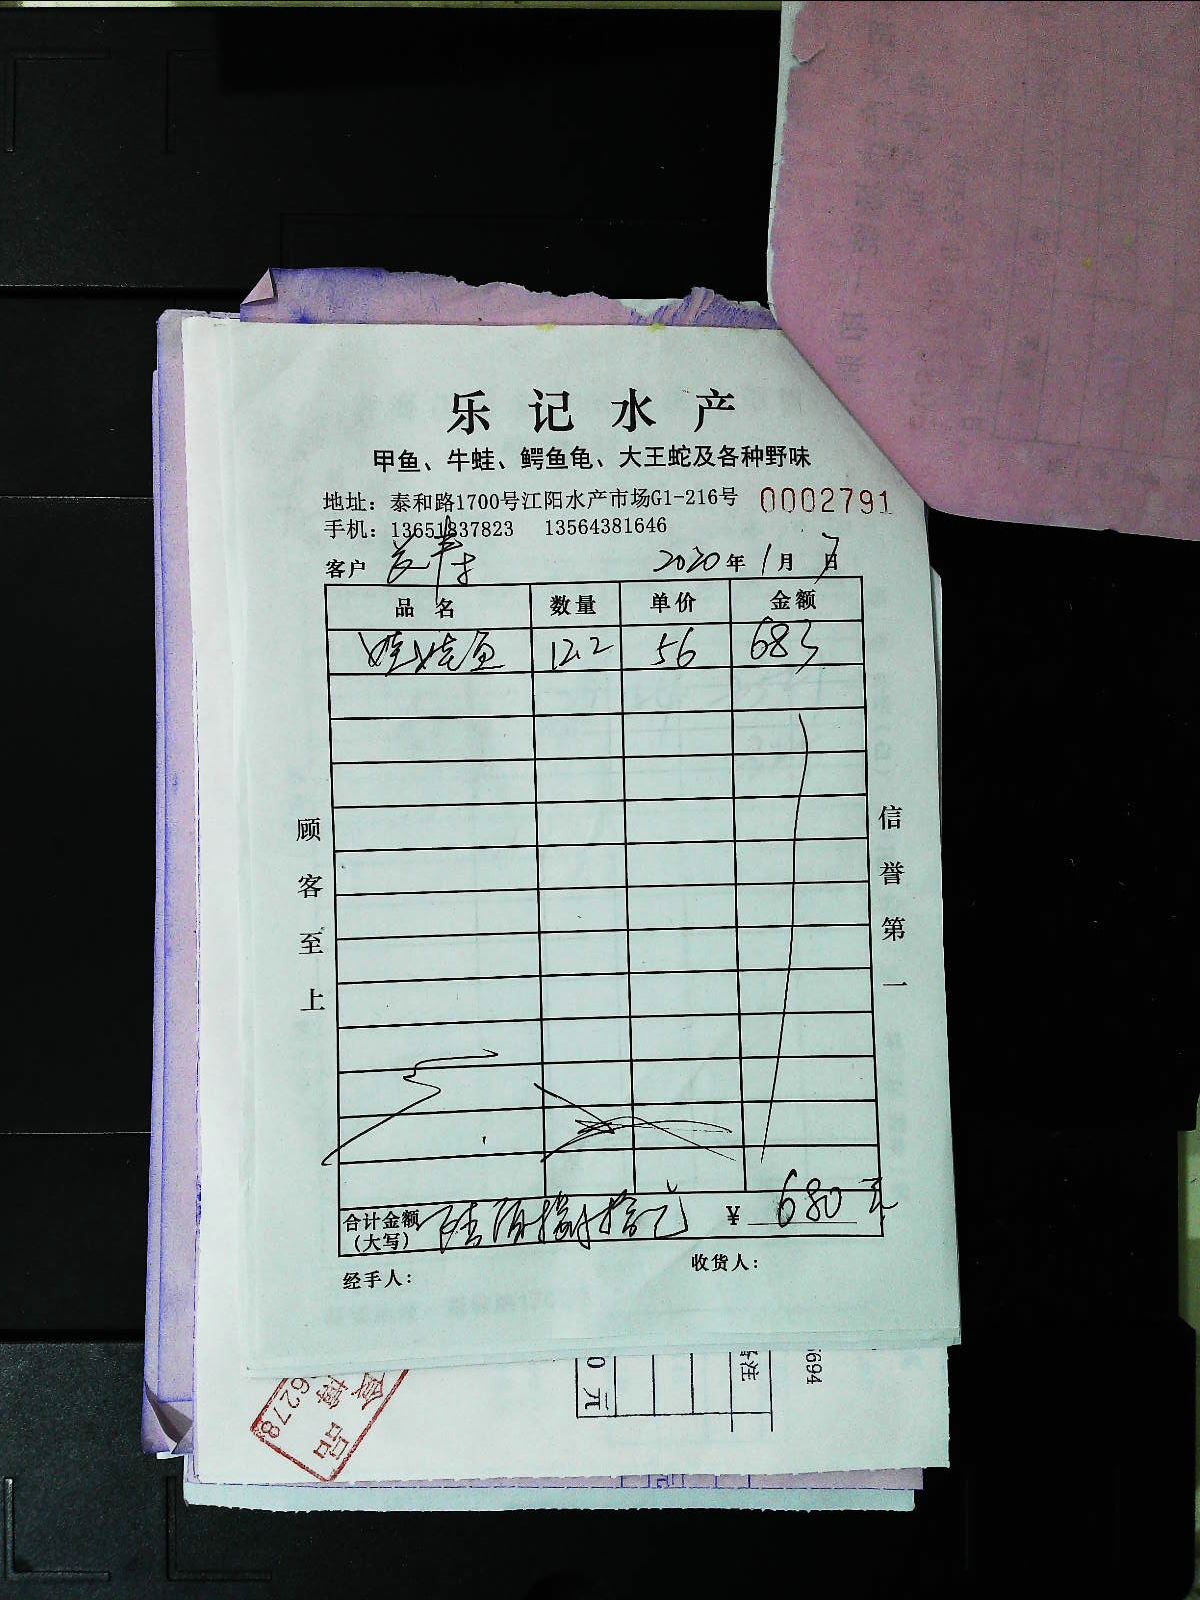 乐记水产
甲鱼、牛蛙、鳄鱼龟、大王蛇及各种野味
地址：泰和路1700号江阳水产市场G1-216号 0002791
手机：13651837823 13564381646
客户 2020年1月7日
品名 数量 单价 金额
娃娃鱼 12.2 56 683
顾客至上
信誉第一
合计金额（大写） 陆佰捌拾元 ¥ 680元
经手人： 收货人：
5694
备注
0元
品
6278